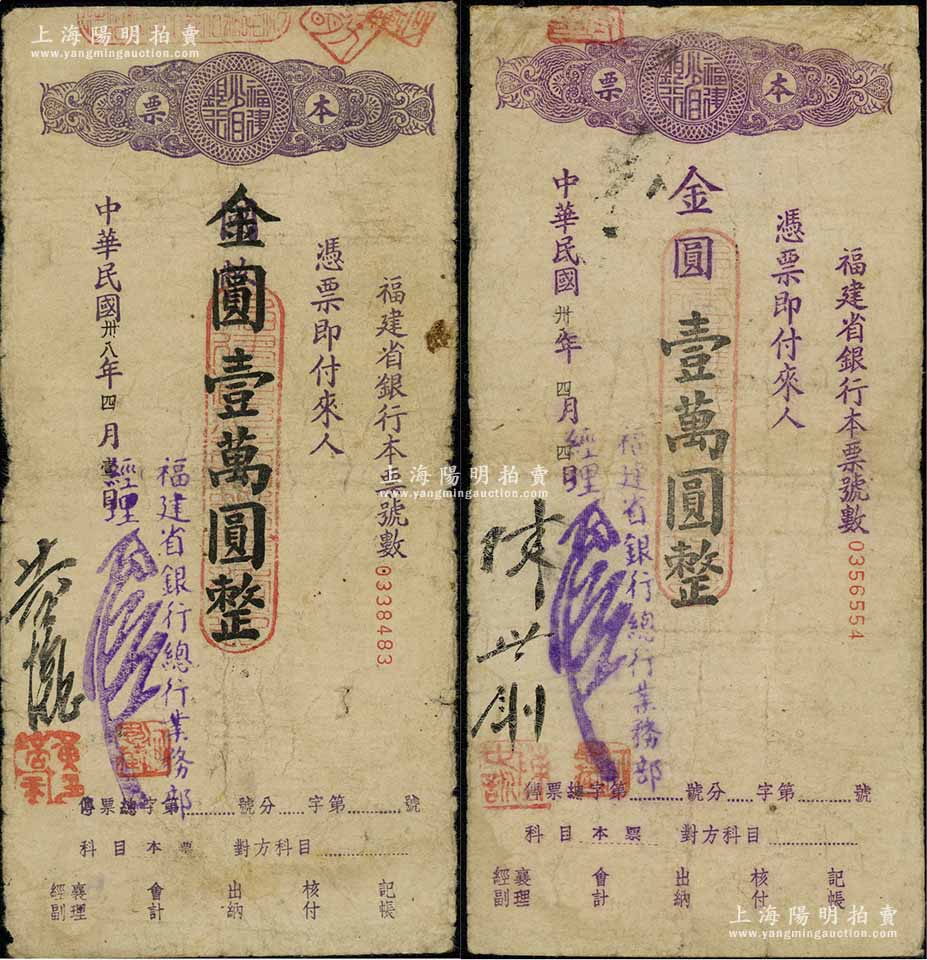 上海陽明拍賣
www.yangmingauction.com
本票
福建省銀行
福建省銀行本票號數
0338483
憑票即付來人
金圓壹萬圓整
中華民國卅八年四月 日
福建省銀行總行業務部
經理
傳票總字第 號分 字第 號
科目本票 對方科目
記帳
核付
出納
會計
襄理
經副
上海陽明拍賣
www.yangmingauction.com
本票
福建省銀行
福建省銀行本票號數
0356554
憑票即付來人
金圓壹萬圓整
中華民國卅八年四月四日
福建省銀行總行業務部
經理
傳票總字第 號分 字第 號
科目本票 對方科目
記帳
核付
出納
會計
襄理
經副
上海陽明拍賣
www.yangmingauction.com
上海陽明拍賣
www.yangmingauction.com